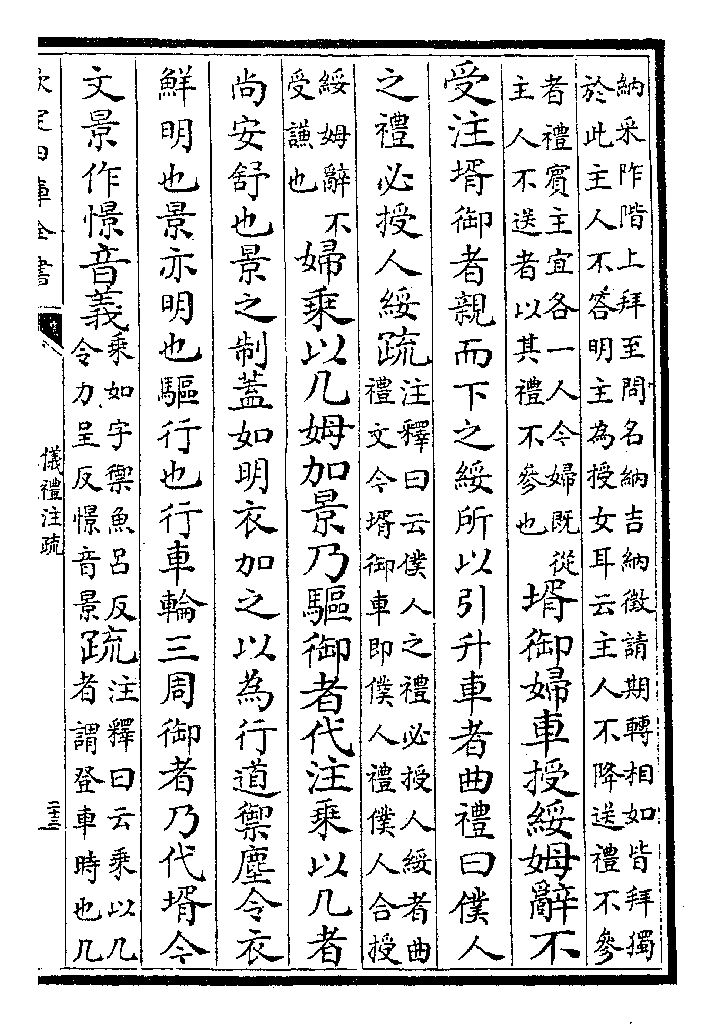 納采阼階上拜至問名納吉納徵請期轉相如皆拜獨
於此主人不答明主為授女耳云主人不降送禮不參
者禮賓主宜各一人今婦既從
主人不送者以其禮不參也
壻御婦車授綏姆辭不
受注壻御者親而下之綏所以引升車者曲禮曰僕人
之禮必授人綏疏
注釋曰云僕人之禮必授人綏者曲
禮文今壻御車即僕人禮僕人合授
綏姆辭不
受謙也
婦乘以几姆加景乃驅御者代注乘以几者
尚安舒也景之制蓋如明衣加之以為行道禦塵令衣
鮮明也景亦明也驅行也行車輪三周御者乃代壻今
文景作憬音義
乘如字禦魚呂反
令力呈反憬音景
疏
注釋曰云乘以几
者謂登車時也几
欽定四庫全書
儀禮注疏
二十三